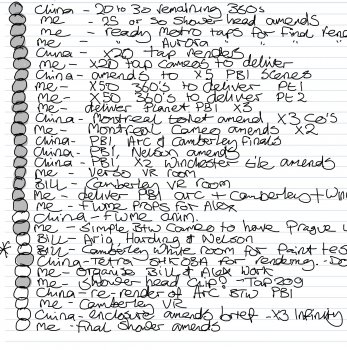 China - 20 to 30 remaining 360s
Me - 25 or so shower head amends
Me - ready metro taps for final rend
Me - " " Aurora " "
China - x20 tap renders
Me - x20 tap cameos to deliver
China - amends to x5 PBI scenes
Me - x50 360's to deliver PT1
Me - x50 360's to deliver PT2
Me - deliver planet PBI x3
China - Montreal toilet amend x3 Co's
Me - Montreal Cameo amends x2
China - PBI, Arc & Camberley Finals
China - PBI, Nelson amends
China - PBI, x2 Winchester tile amends
Me - Verso VR room
Bill - Camberley VR room
Me - deliver PBI arc + Camberley + Win
Me - Flume props for Alex
China - Flume anim.
Me - Simple BTW Cameo to have Prague
Bill - Aria, Harding & Nelson
* Bill - Camberley White room for paint tes
China - Tetro, SHKOBA for rendering.
Me - Organise Bill & Alex work
Me - Shower head Tap 209
China - re-render of Arc BTW PBI
Me - Camberley VR
China - enclosure amends brief - x3 infinity
Me - final shower amends